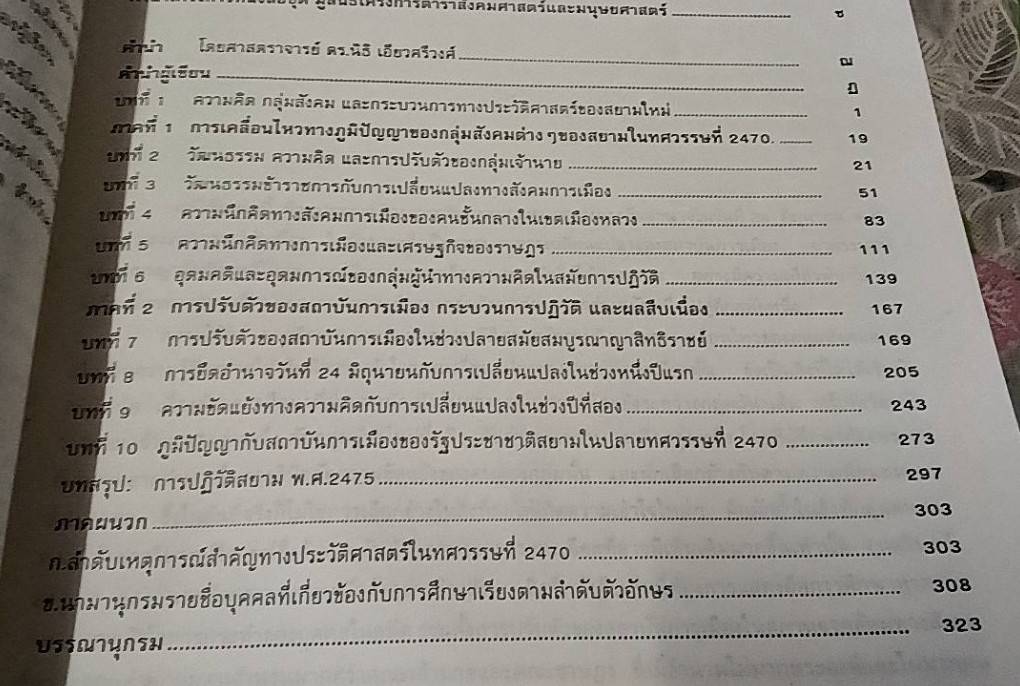 มูลนิธิโครงการตำราสังคมศาสตร์และมนุษยศาสตร์ ซ
คำนำ โดยศาสตราจารย์ ดร.นิธิ เอียวศรีวงศ์ ฌ
คำนำผู้เขียน ฎ
บทที่ 1 ความคิด กลุ่มสังคม และกระบวนการทางประวัติศาสตร์ของสยามใหม่ 1
ภาคที่ 1 การเคลื่อนไหวทางภูมิปัญญาของกลุ่มสังคมต่าง ๆของสยามในทศวรรษที่ 2470. 19
บทที่ 2 วัฒนธรรม ความคิด และการปรับตัวของกลุ่มเจ้านาย 21
บทที่ 3 วัฒนธรรมข้าราชการกับการเปลี่ยนแปลงทางสังคมการเมือง 51
บทที่ 4 ความนึกคิดทางสังคมการเมืองของคนชั้นกลางในเขตเมืองหลวง 83
บทที่ 5 ความนึกคิดทางการเมืองและเศรษฐกิจของราษฎร 111
บทที่ 6 อุดมคติและอุดมการณ์ของกลุ่มผู้นำทางความคิดในสมัยการปฏิวัติ 139
ภาคที่ 2 การปรับตัวของสถาบันการเมือง กระบวนการปฏิวัติ และผลสืบเนื่อง 167
บทที่ 7 การปรับตัวของสถาบันการเมืองในช่วงปลายสมัยสมบูรณาญาสิทธิราชย์ 169
บทที่ 8 การยึดอำนาจวันที่ 24 มิถุนายนกับการเปลี่ยนแปลงในช่วงหนึ่งปีแรก 205
บทที่ 9 ความขัดแย้งทางความคิดกับการเปลี่ยนแปลงในช่วงปีที่สอง 243
บทที่ 10 ภูมิปัญญากับสถาบันการเมืองของรัฐประชาชาติสยามในปลายทศวรรษที่ 2470 273
บทสรุป: การปฏิวัติสยาม พ.ศ.2475 297
ภาคผนวก 303
ก.ลำดับเหตุการณ์สำคัญทางประวัติศาสตร์ในทศวรรษที่ 2470 303
ข.นามานุกรมรายชื่อบุคคลที่เกี่ยวข้องกับการศึกษาเรียงตามลำดับตัวอักษร 308
บรรณานุกรม 323